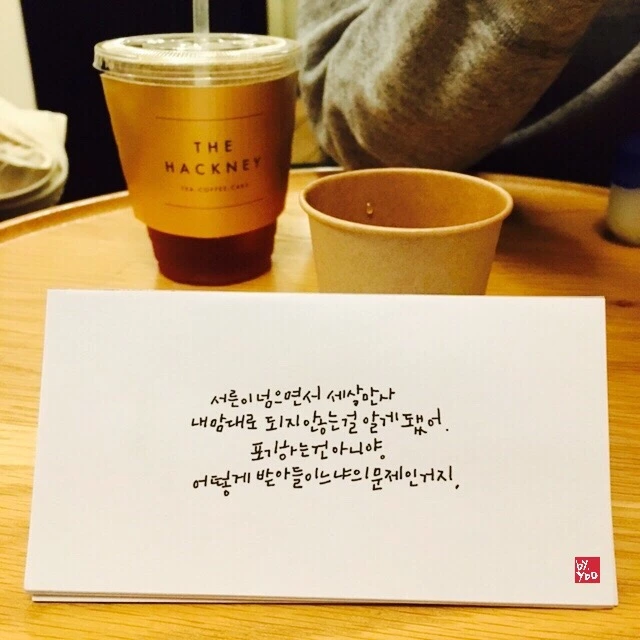 THE
HACKNEY
TEA COFFEE CAKE
서른이 넘으면서 세상만사
내 맘대로 되지 않는걸 알게 됐어.
포기하는건 아니야.
어떻게 받아들이느냐의 문제인거지.
by.
YDO